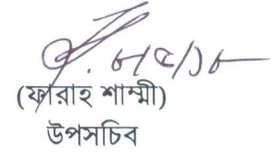 (ফারাহ শাম্মী)
উপসচিব